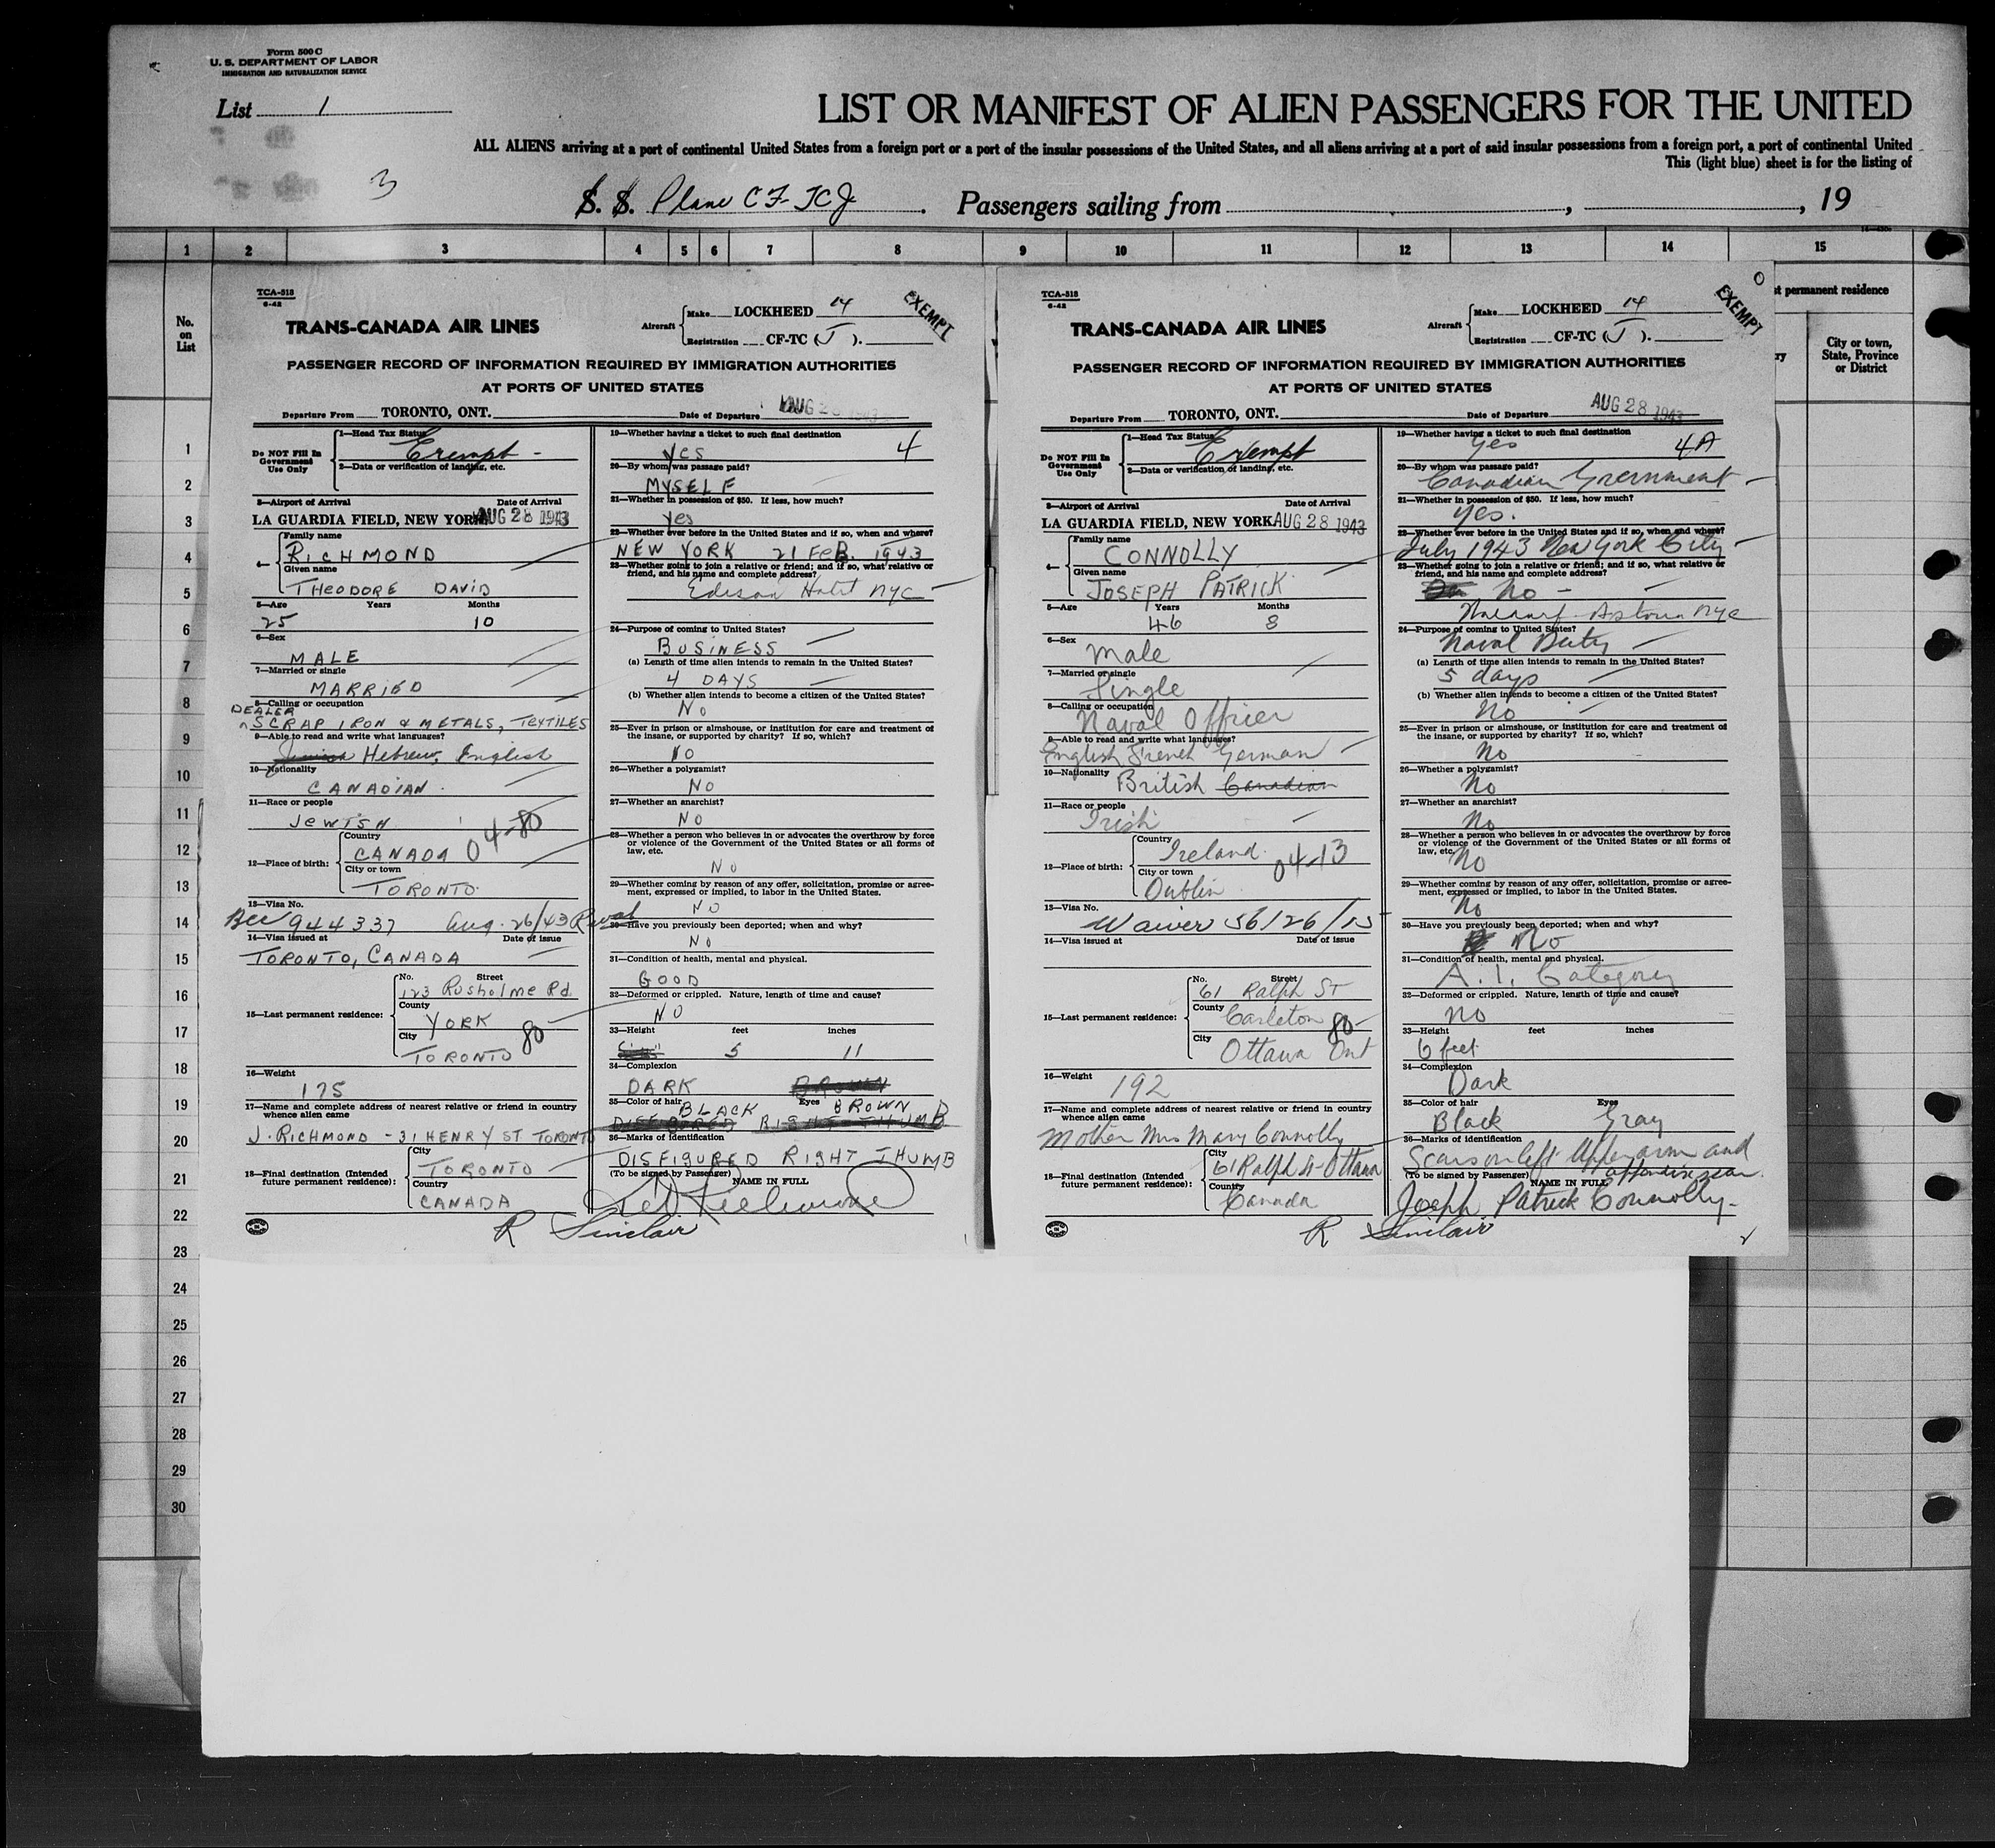 Form 500 C
U. S. DEPARTMENT OF LABOR
IMMIGRATION AND NATURALIZATION SERVICE
List 1
LIST OR MANIFEST OF ALIEN PASSENGERS FOR THE UNITED
ALL ALIENS arriving at a port of continental United States from a foreign port or a port of the insular possessions of the United States, and all aliens arriving at a port of said insular possessions from a foreign port, a port of continental United
This (light blue) sheet is for the listing of
3
S. S. Plane CF-TCJ. Passengers sailing from , , 19
1 2 3 4 5 6 7 8 9 10 11 12 13 14 15
No. on List
t permanent residence
ry
City or town, State, Province or District
1
2
3
4
5
6
7
8
9
10
11
12
13
14
15
16
17
18
19
20
21
22
23
24
25
26
27
28
29
30
TCA-518
6-42
TRANS-CANADA AIR LINES
Aircraft Make LOCKHEED 14
Registration CF-TC (J).
EXEMPT
PASSENGER RECORD OF INFORMATION REQUIRED BY IMMIGRATION AUTHORITIES
AT PORTS OF UNITED STATES
Departure From TORONTO, ONT. Date of Departure AUG 28 1943
Do NOT Fill In Government Use Only
1—Head Tax Status
Exempt -
2—Data or verification of landing, etc.
3—Airport of Arrival Date of Arrival
LA GUARDIA FIELD, NEW YORK AUG 28 1943
4— Family name
RICHMOND
Given name
THEODORE DAVID
5—Age Years Months
25 10
6—Sex
MALE
7—Married or single
MARRIED
8—Calling or occupation
DEALER
SCRAP IRON & METALS, TEXTILES
9—Able to read and write what languages?
Hebrew, English
10—Nationality
CANADIAN
11—Race or people
JEWISH
12—Place of birth: Country
CANADA 04-80
City or town
TORONTO
13—Visa No.
BCC 944337 Aug. 26/43
14—Visa issued at Date of issue
TORONTO, CANADA
15—Last permanent residence: No. Street
123 Rusholme Rd
County
YORK
City 80
TORONTO
16—Weight
175
17—Name and complete address of nearest relative or friend in country whence alien came
J. RICHMOND - 31 HENRY ST TORONTO
18—Final destination (Intended future permanent residence): City
TORONTO
Country
CANADA
19—Whether having a ticket to such final destination
YES 4
20—By whom was passage paid?
MYSELF
21—Whether in possession of $50. If less, how much?
Yes
22—Whether ever before in the United States and if so, when and where?
NEW YORK 21 FEB. 1943
23—Whether going to join a relative or friend; and if so, what relative or friend, and his name and complete address?
Edison Hotel NYC
24—Purpose of coming to United States?
BUSINESS
(a) Length of time alien intends to remain in the United States?
4 DAYS
(b) Whether alien intends to become a citizen of the United States?
No
25—Ever in prison or almshouse, or institution for care and treatment of the insane, or supported by charity? If so, which?
NO
26—Whether a polygamist?
NO
27—Whether an anarchist?
NO
28—Whether a person who believes in or advocates the overthrow by force or violence of the Government of the United States or all forms of law, etc.
NO
29—Whether coming by reason of any offer, solicitation, promise or agreement, expressed or implied, to labor in the United States.
NO
30—Have you previously been deported; when and why?
NO
31—Condition of health, mental and physical.
GOOD
32—Deformed or crippled. Nature, length of time and cause?
NO
33—Height feet inches
5 11
34—Complexion
DARK BROWN
35—Color of hair BLACK Eyes BROWN
DISFIGURED RIGHT THUMB
36—Marks of identification
DISFIGURED RIGHT THUMB
(To be signed by Passenger) NAME IN FULL
R Sinclair
TCA-518
6-42
TRANS-CANADA AIR LINES
Aircraft Make LOCKHEED 14
Registration CF-TC (J).
EXEMPT
PASSENGER RECORD OF INFORMATION REQUIRED BY IMMIGRATION AUTHORITIES
AT PORTS OF UNITED STATES
Departure From TORONTO, ONT. Date of Departure AUG 28 1943
Do NOT Fill In Government Use Only
1—Head Tax Status
Exempt
2—Data or verification of landing, etc.
3—Airport of Arrival Date of Arrival
LA GUARDIA FIELD, NEW YORK AUG 28 1943
4— Family name
CONNOLLY
Given name
JOSEPH PATRICK
5—Age Years Months
46 8
6—Sex
Male
7—Married or single
Single
8—Calling or occupation
Naval Officer
9—Able to read and write what languages?
English French German
10—Nationality
British Canadian
11—Race or people
Irish
12—Place of birth: Country
Ireland 04-13
City or town
Dublin
13—Visa No.
Waiver 56126/15
14—Visa issued at Date of issue
15—Last permanent residence: No. Street
61 Ralph ST
County
Carleton 80
City
Ottawa Ont
16—Weight
192
17—Name and complete address of nearest relative or friend in country whence alien came
Mother Mrs Mary Connolly
18—Final destination (Intended future permanent residence): City
61 Ralph St Ottawa
Country
Canada
19—Whether having a ticket to such final destination
Yes 4A
20—By whom was passage paid?
Canadian Government
21—Whether in possession of $50. If less, how much?
Yes.
22—Whether ever before in the United States and if so, when and where?
July 1943 New York City
23—Whether going to join a relative or friend; and if so, what relative or friend, and his name and complete address?
No -
Astoria NYC
24—Purpose of coming to United States?
Naval Duty
(a) Length of time alien intends to remain in the United States?
5 days
(b) Whether alien intends to become a citizen of the United States?
No
25—Ever in prison or almshouse, or institution for care and treatment of the insane, or supported by charity? If so, which?
No
26—Whether a polygamist?
No
27—Whether an anarchist?
No
28—Whether a person who believes in or advocates the overthrow by force or violence of the Government of the United States or all forms of law, etc.
No
29—Whether coming by reason of any offer, solicitation, promise or agreement, expressed or implied, to labor in the United States.
No
30—Have you previously been deported; when and why?
No
31—Condition of health, mental and physical.
A.1. Category
32—Deformed or crippled. Nature, length of time and cause?
No
33—Height feet inches
6 feet
34—Complexion
Dark
35—Color of hair Eyes
Black Gray
36—Marks of identification
Scars on left Upper arm and
(To be signed by Passenger) NAME IN FULL
Joseph Patrick Connolly
R Sinclair